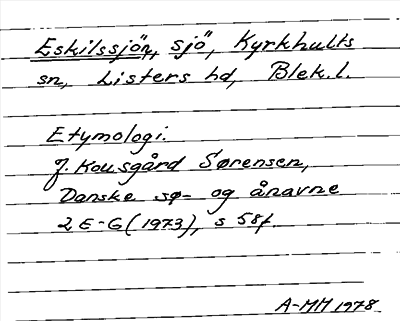 Eskilssjön, sjö, Kyrkhults
sn, Listers hd, Blek. l.
Etymologi.
J. Kousgård Sørensen,
Danske sø- og ånavne
2 E-G (1973), s 58f.
A-MM 1978